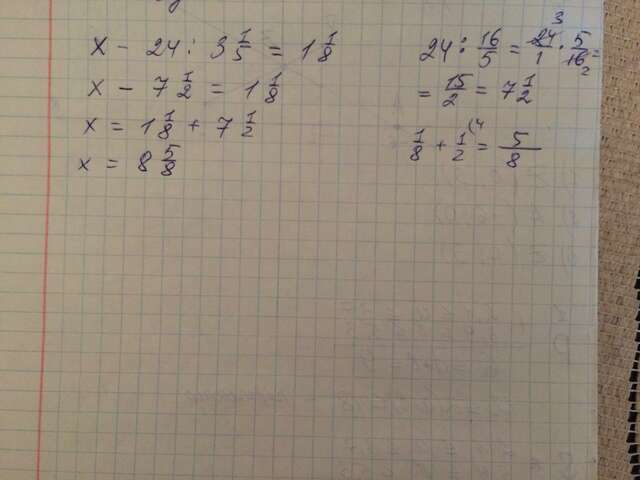 x - 24 : 3 1/5 = 1 1/8
x - 7 1/2 = 1 1/8
x = 1 1/8 + 7 1/2
x = 8 5/8
24 : 16/5 = 24/1 · 5/16 =
3
2
= 15/2 = 7 1/2
1/8 + 1/2 (4 = 5/8